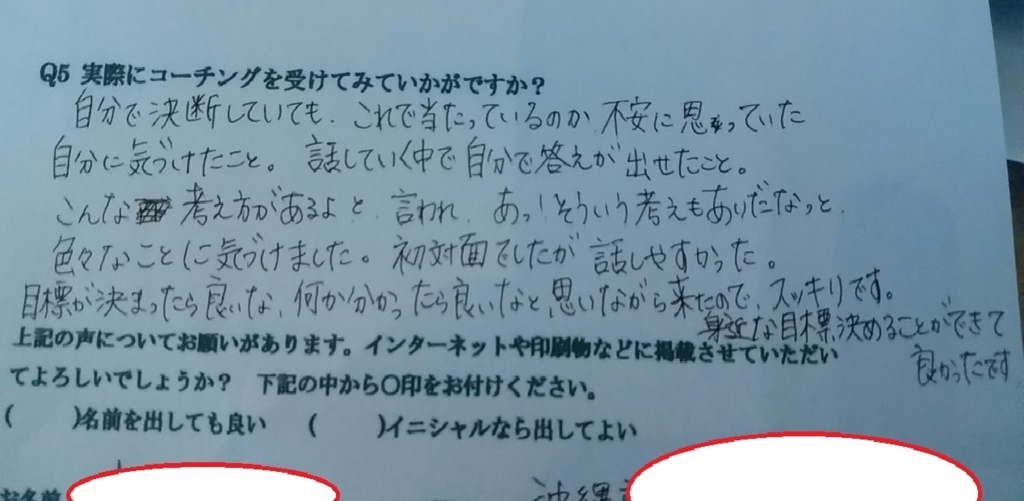 Q5 実際にコーチングを受けてみていかがですか？
自分で決断していても、これで当たっているのか、不安に思っていた
自分に気づけたこと。話していく中で自分で答えが出せたこと。
こんな考え方があるよと、言われ、あっ！そういう考えもありだなっと、
色々なことに気づけました。初対面でしたが話しやすかった。
目標が決まったら良いな、何か分かったら良いなと、思いながら来たので、スッキリです。
身近な目標決めることができて
良かったです
上記の声についてお願いがあります。インターネットや印刷物などに掲載させていただい
てよろしいでしょうか？ 下記の中から〇印をお付けください。
( )名前を出しても良い ( )イニシャルなら出してよい
お名前 沖縄